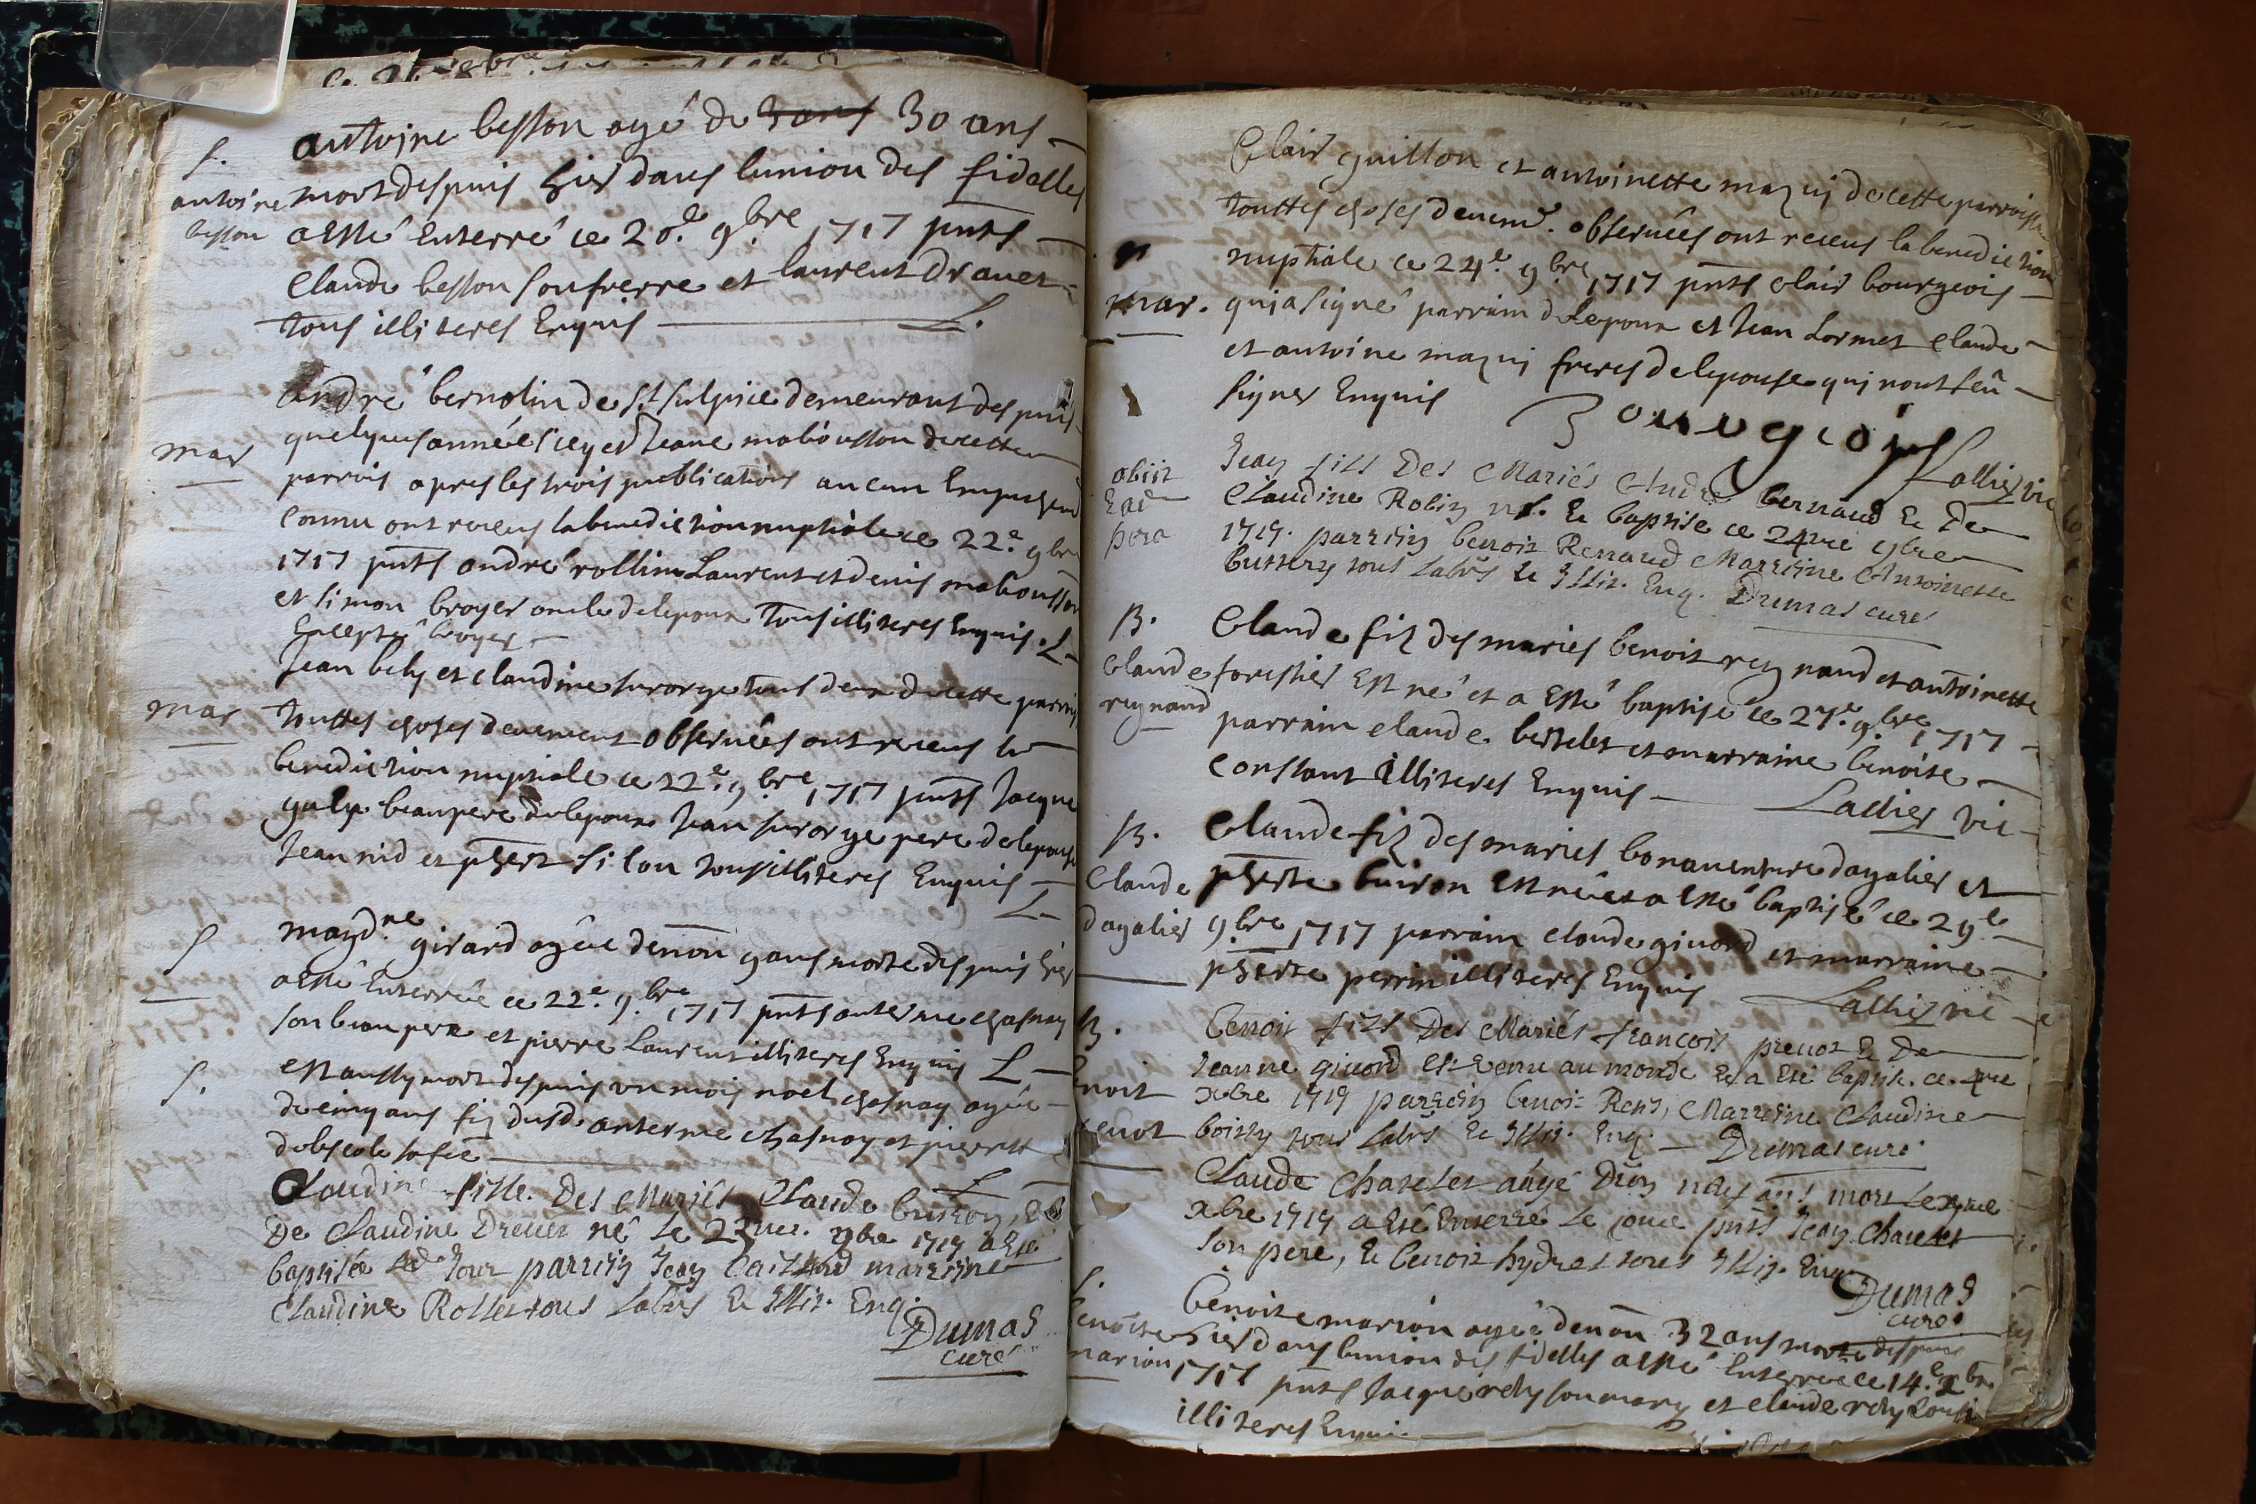 S.
antoine
besson
antoine besson agé de 3 ans 30 ans
mort despuis hier dans lunion des fidelles
a esté enterré ce 20.e 9.bre 1717 pnts
Claude besson son frerre et laurent Dranet
tous illiteres Enquis L.
mar
André bernolin de St sulpice demeurant despuis
quelques années icy et Jeane mabousson de cette
parrois apres les trois publications aucun Empeschem
connu ont receus la benediction nuptiale ce 22.e 9bre
1717 pnts andré rollin Laurent et denis mabousson
et simon broyer oncle de lepoux Tous illiteres Enquis. L
Excepté broyer
mar
Jean bely et claudine surorge tous deux de cette parrois
touttes choses deuement observées ont receus la
benediction nuptiale ce 22.e 9.bre 1717 pnts Jacque
guly beaupere de lepoux Jean surorge pere de lepouse
Jean nid et phert silon tous illiteres Enquis
L
S
magd.ne girard agée denõn 9 ans morte despuis hier
a esté Enterrée ce 22.e 9.bre 1717 pnts anterme chasnay
son beaupere et pierre Laurent illiteres Enquis L
S.
Est aussy mort despuis un mois noel chasnay agée
de cinq ans fiz dud. anterme chasnay et pierrette
L
Claudine fille. Des Mariés Claude buiron, Et
De Claudine Drevet né le 23me. 9bre 1717 a Eté
baptisée led. Jour parrein Jean Caillard marreine
Claudine Rollet tous Labrs Et Illit. Enq.
Dumas
curé
mar.
Clair guillon et antoinette mazuy de cette parroisse
touttes choses deuem.t observées ont receus la benediction
nuptiale ce 24.e 9bre 1717 pnts clair bourgeois
qui a signé parrain de lepoux et Jean Lormet Claude
et antoine mazuy freres de lepouse qui nont sceû
signer Enquis
Bourgeois
Lallier vic
obiit
Ead
hora
Jean fils Des Mariés André bernaud Et De
Claudine Robin né. Et baptise ce 24me 9bre
1717. parrein benoit Renaud Marreine Antoinette
buttery tous Labrs Et Illit. Enq. Dumas curé
B.
Claude
reynaud
Claude fiz des mariés benoit reynaud et antoinette
forestier Est né et a Esté baptisé ce 27.e 9.bre 1717
parrain claude berthelet et marraine benoite
constant illiteres Enquis Lallier vic
B.
Claude
dagalier
Claude fiz des mariés bonaventure dagalier et
pherte buiron Est né et a Esté baptisé ce 29e
9.bre 1717 parrain claude givord et marraine
pherte perrin illiteres Enquis
Lallier vic
B.
benoit
prevot
benoit fils Des Mariés françois prevot Et De
Jeanne givord Est venu au monde Et a Eté baptisé. ce. 4me
xbre 1717 parrein benoit Rety, Marreine Claudine
boissy tous Labrs Et Illit. Enq. Dumas curé.
Claude Chatelet aâgé D'un mois mort Le
xbre 1717 a Eté Enterré Le jour pnts Jean Chatelet
son pere, Et benoit hydret tous Illit. Enq.
Dumas
curé
S.
benoite
marion
benoite marion agée denõn 32 ans morte despuis
hier dans lunion des fidelles a Esté Enterrée ce 14.e xbre
1717 pnts Jacque rety son mary et claude rety
illiteres Enquis